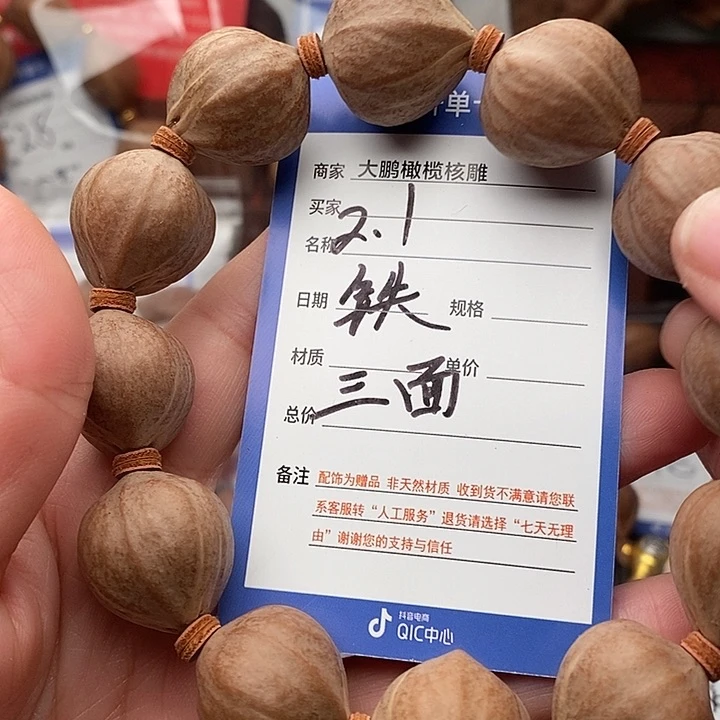 单
商家 大鹏橄榄核雕
买家
2.1
名称
日期 铁 规格
材质 单价
三面
总价
备注 配饰为赠品 非天然材质 收到货不满意请您联
系客服转“人工服务”退货请选择“七天无理
由”谢谢您的支持与信任
抖音电商
QIC中心